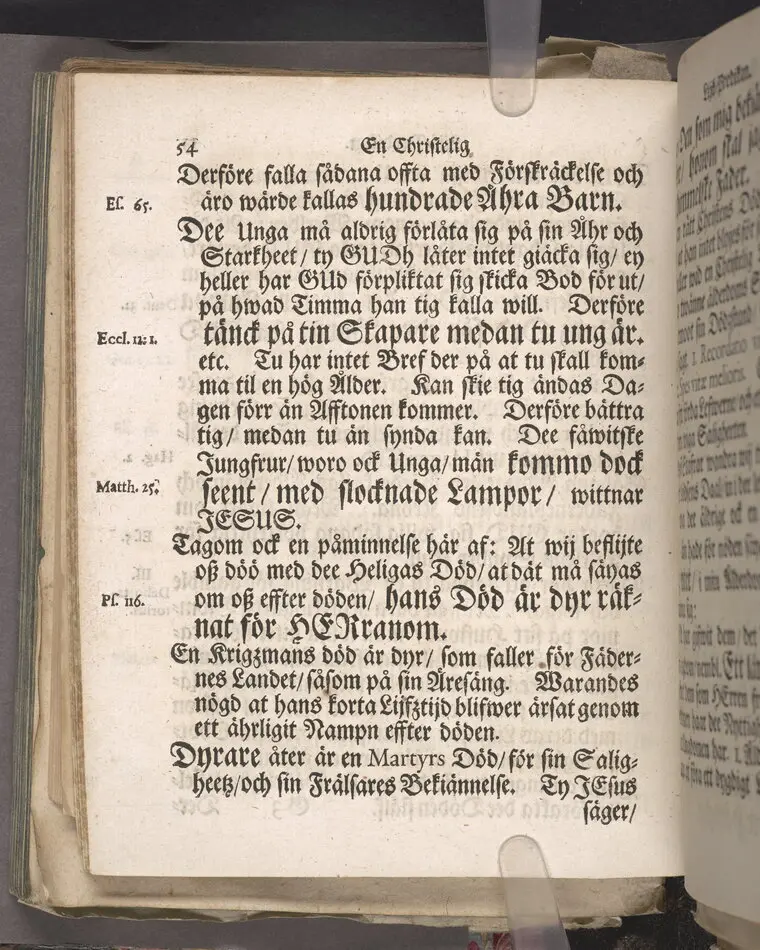 54 En Christelig
Derföre falla sådana offta med Förskräckelse och
Es. 65. äro wärde kallas hundrade Åhra Barn.
Dee Unga må aldrig förlåta sig på sin Åhr och
Starkheet/ ty GUDh låter intet giäcka sig/ ey
heller har GUd förpliktat sig skicka Bod för ut/
på hwad Timma han tig kalla will. Derföre
Eccl. 12: 1. tänck på tin Skapare medan tu ung är.
etc. Tu har intet Bref der på at tu skall kom⸗
ma til en hög Ålder. Kan skie tig ändas Da⸗
gen förr än Afftonen kommer. Derföre bättra
tig/ medan tu än synda kan. Dee fåwitske
Jungfrur/ woro ock Unga/ män kommo dock
Matth. 25. seent/ med slocknade Lampor/ wittnar
JESUS.
Tagom ock en påminnelse här af: At wij beflijte
oß döö med dee Heligas Död/ at dät må säyas
Ps. 116. om oß effter döden/ hans Död är dyr räk⸗
nat för HERranom.
En Krigzmans död är dyr/ som faller för Fäder⸗
nes Landet/ såsom på sin Äresäng. Warandes
nögd at hans korta Lijfztijd blifwer ärsat genom
ett ährligit Nampn effter döden.
Dyrare åter är en Martyrs Död/ för sin Salig⸗
heetz/ och sin Frälsares Bekiännelse. Ty JEsus
säger/